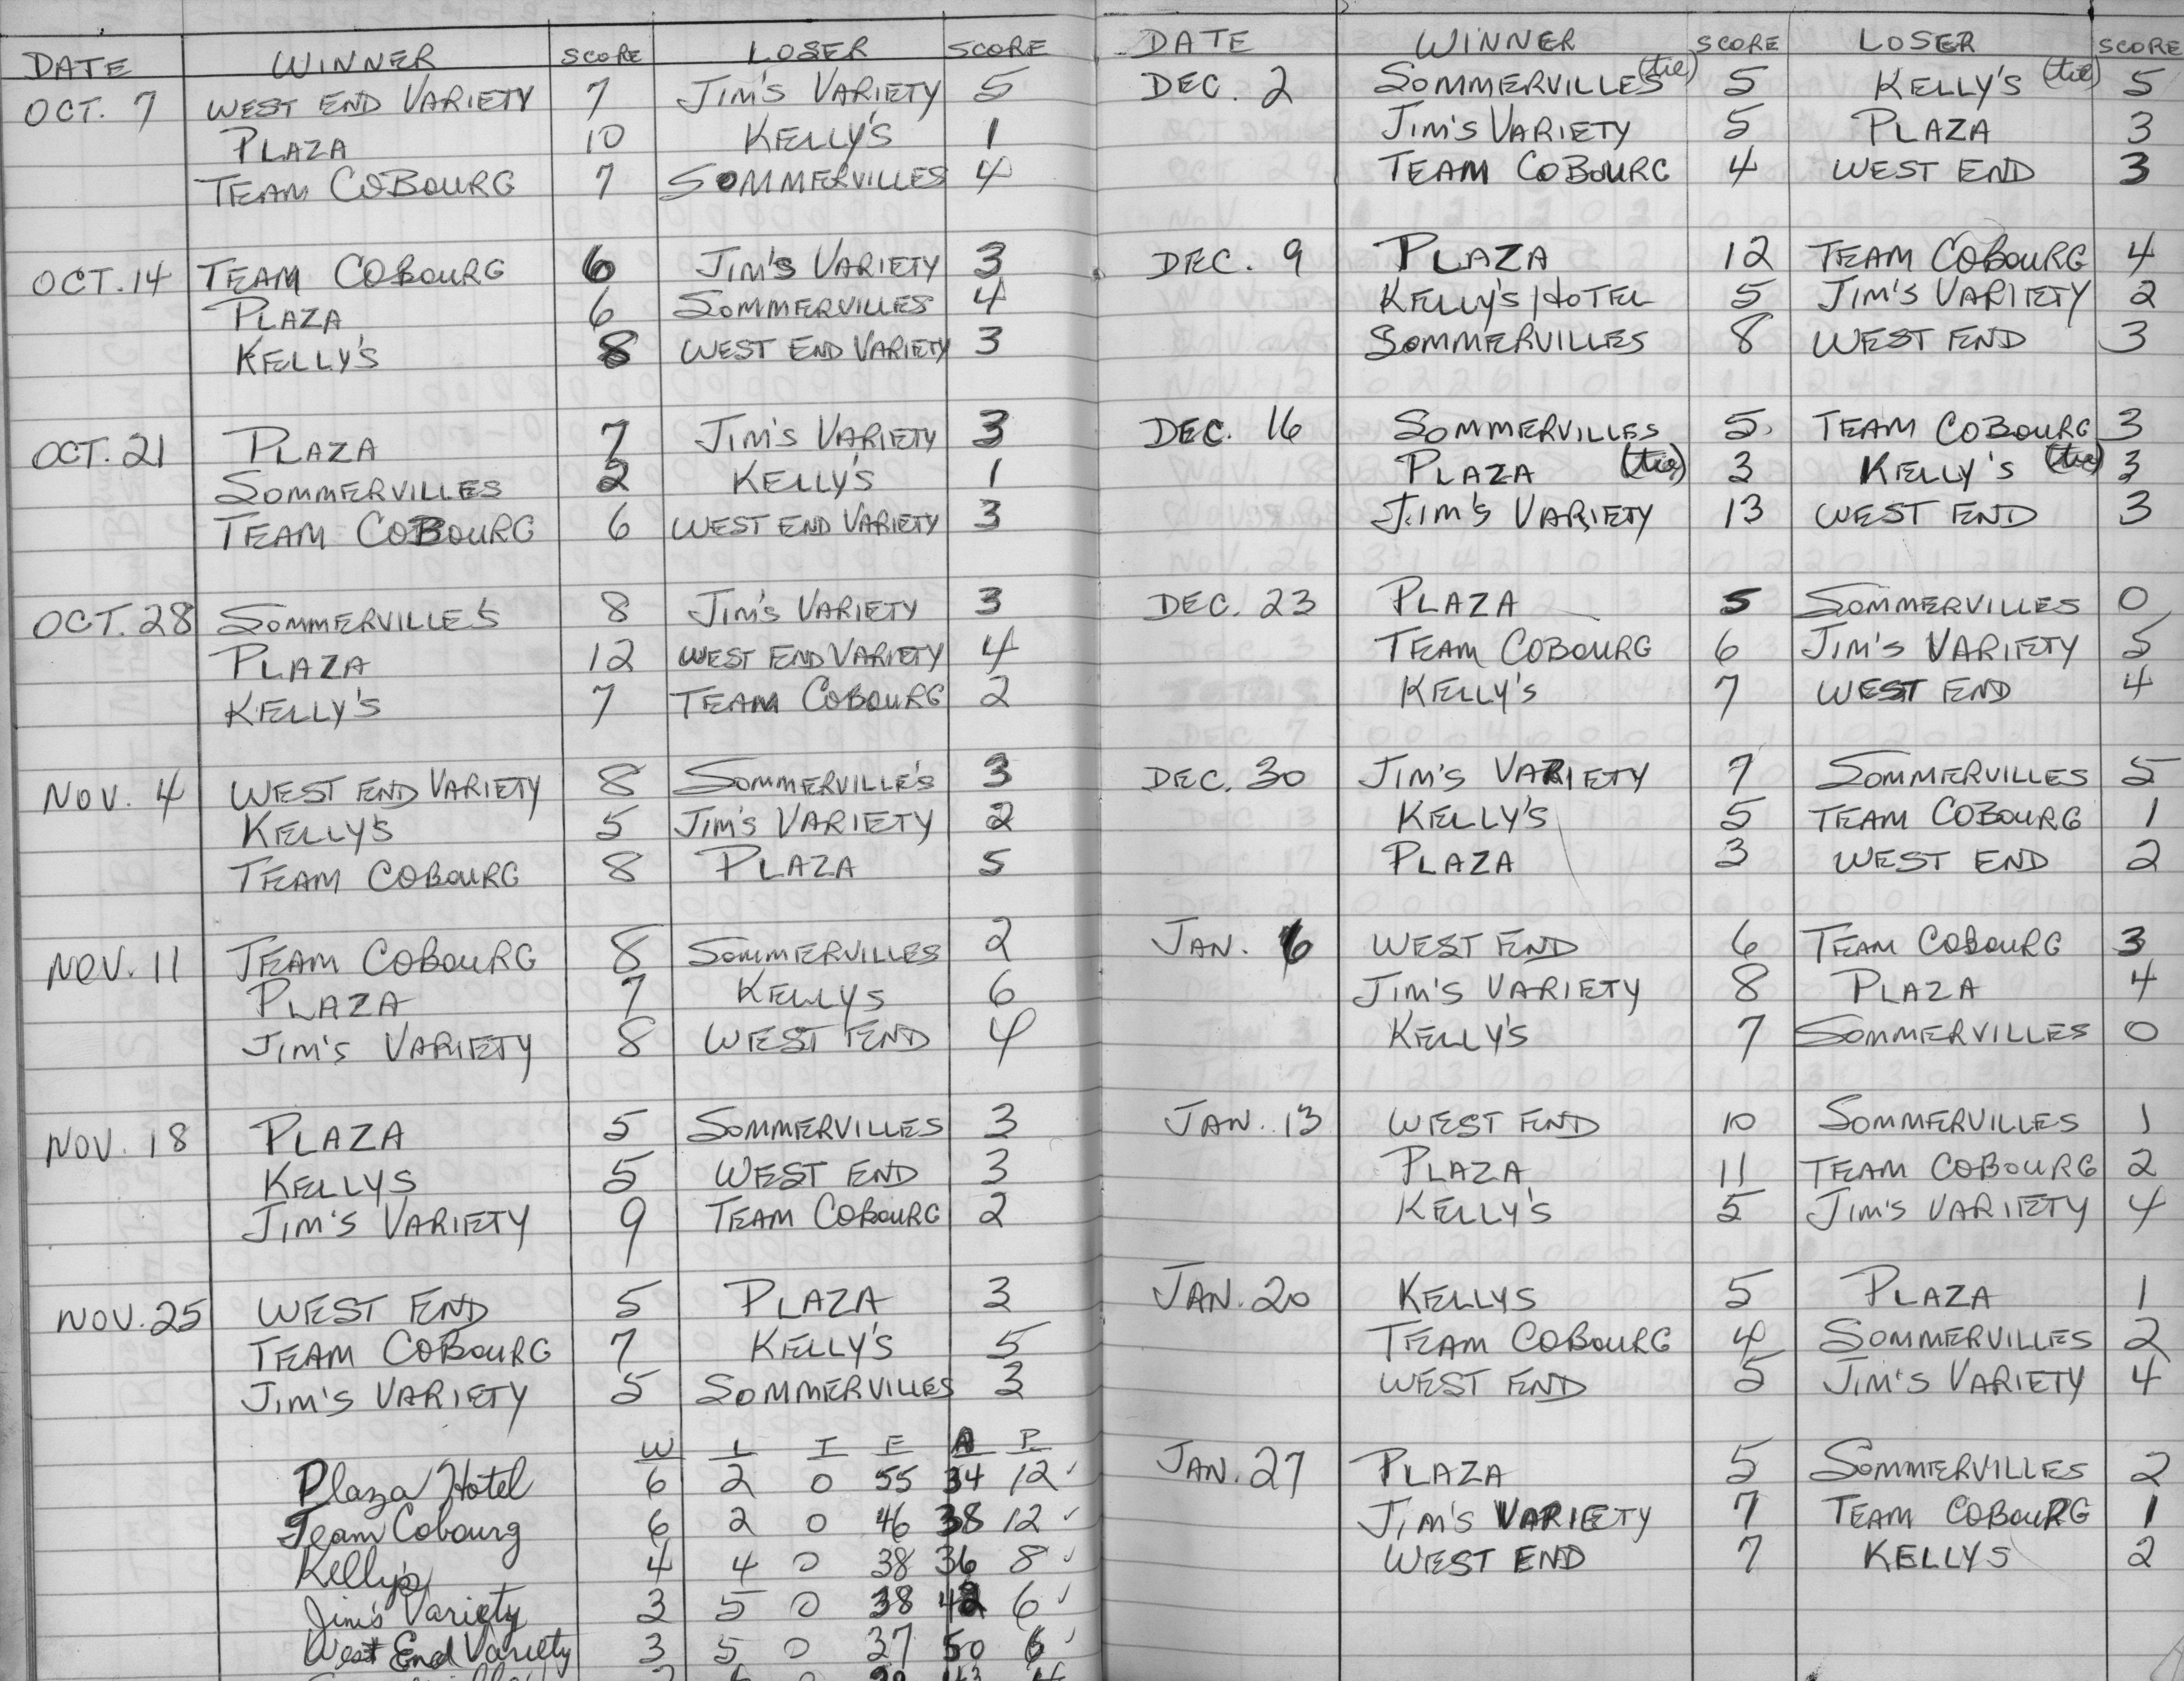 DATE WINNER SCORE LOSER SCORE
OCT. 7 WEST END VARIETY 7 JIM'S VARIETY 5
PLAZA 10 KELLY'S 1
TEAM COBOURG 7 SOMMERVILLES 4
OCT. 14 TEAM COBOURG 6 JIM'S VARIETY 3
PLAZA 6 SOMMERVILLES 4
KELLY'S 8 WEST END VARIETY 3
OCT. 21 PLAZA 7 JIM'S VARIETY 3
SOMMERVILLES 2 KELLY'S 1
TEAM COBOURG 6 WEST END VARIETY 3
OCT. 28 SOMMERVILLE'S 8 JIM'S VARIETY 3
PLAZA 12 WEST END VARIETY 4
KELLY'S 7 TEAM COBOURG 2
NOV. 4 WEST END VARIETY 8 SOMMERVILLE'S 3
KELLY'S 5 JIM'S VARIETY 2
TEAM COBOURG 8 PLAZA 5
NOV. 11 TEAM COBOURG 8 SOMMERVILLES 2
PLAZA 7 KELLYS 6
JIM'S VARIETY 8 WEST END 4
NOV. 18 PLAZA 5 SOMMERVILLES 3
KELLYS 5 WEST END 3
JIM'S VARIETY 9 TEAM COBOURG 2
NOV. 25 WEST END 5 PLAZA 3
TEAM COBOURG 7 KELLY'S 5
JIM'S VARIETY 5 SOMMERVILLES 3
W L T F A P
Plaza Hotel 6 2 0 55 34 12
Team Cobourg 6 2 0 46 38 12
Kelly's 4 4 0 38 36 8
Jim's Variety 3 5 0 38 42 6
West End Variety 3 5 0 37 50 6
DATE WINNER SCORE LOSER SCORE
DEC. 2 SOMMERVILLES (tie) 5 KELLY'S (tie) 5
JIM'S VARIETY 5 PLAZA 3
TEAM COBOURG 4 WEST END 3
DEC. 9 PLAZA 12 TEAM COBOURG 4
KELLY'S HOTEL 5 JIM'S VARIETY 2
SOMMERVILLES 8 WEST END 3
DEC. 16 SOMMERVILLES 5 TEAM COBOURG 3
PLAZA (tie) 3 KELLY'S (tie) 3
JIM'S VARIETY 13 WEST END 3
DEC. 23 PLAZA 5 SOMMERVILLES 0
TEAM COBOURG 6 JIM'S VARIETY 5
KELLY'S 7 WEST END 4
DEC. 30 JIM'S VARIETY 7 SOMMERVILLES 5
KELLY'S 5 TEAM COBOURG 1
PLAZA 3 WEST END 2
JAN. 6 WEST END 6 TEAM COBOURG 3
JIM'S VARIETY 8 PLAZA 4
KELLY'S 7 SOMMERVILLES 0
JAN. 13 WEST END 10 SOMMERVILLES 1
PLAZA 11 TEAM COBOURG 2
KELLY'S 5 JIM'S VARIETY 4
JAN. 20 KELLYS 5 PLAZA 1
TEAM COBOURG 4 SOMMERVILLES 2
WEST END 5 JIM'S VARIETY 4
JAN. 27 PLAZA 5 SOMMERVILLES 2
JIM'S VARIETY 7 TEAM COBOURG 1
WEST END 7 KELLYS 2